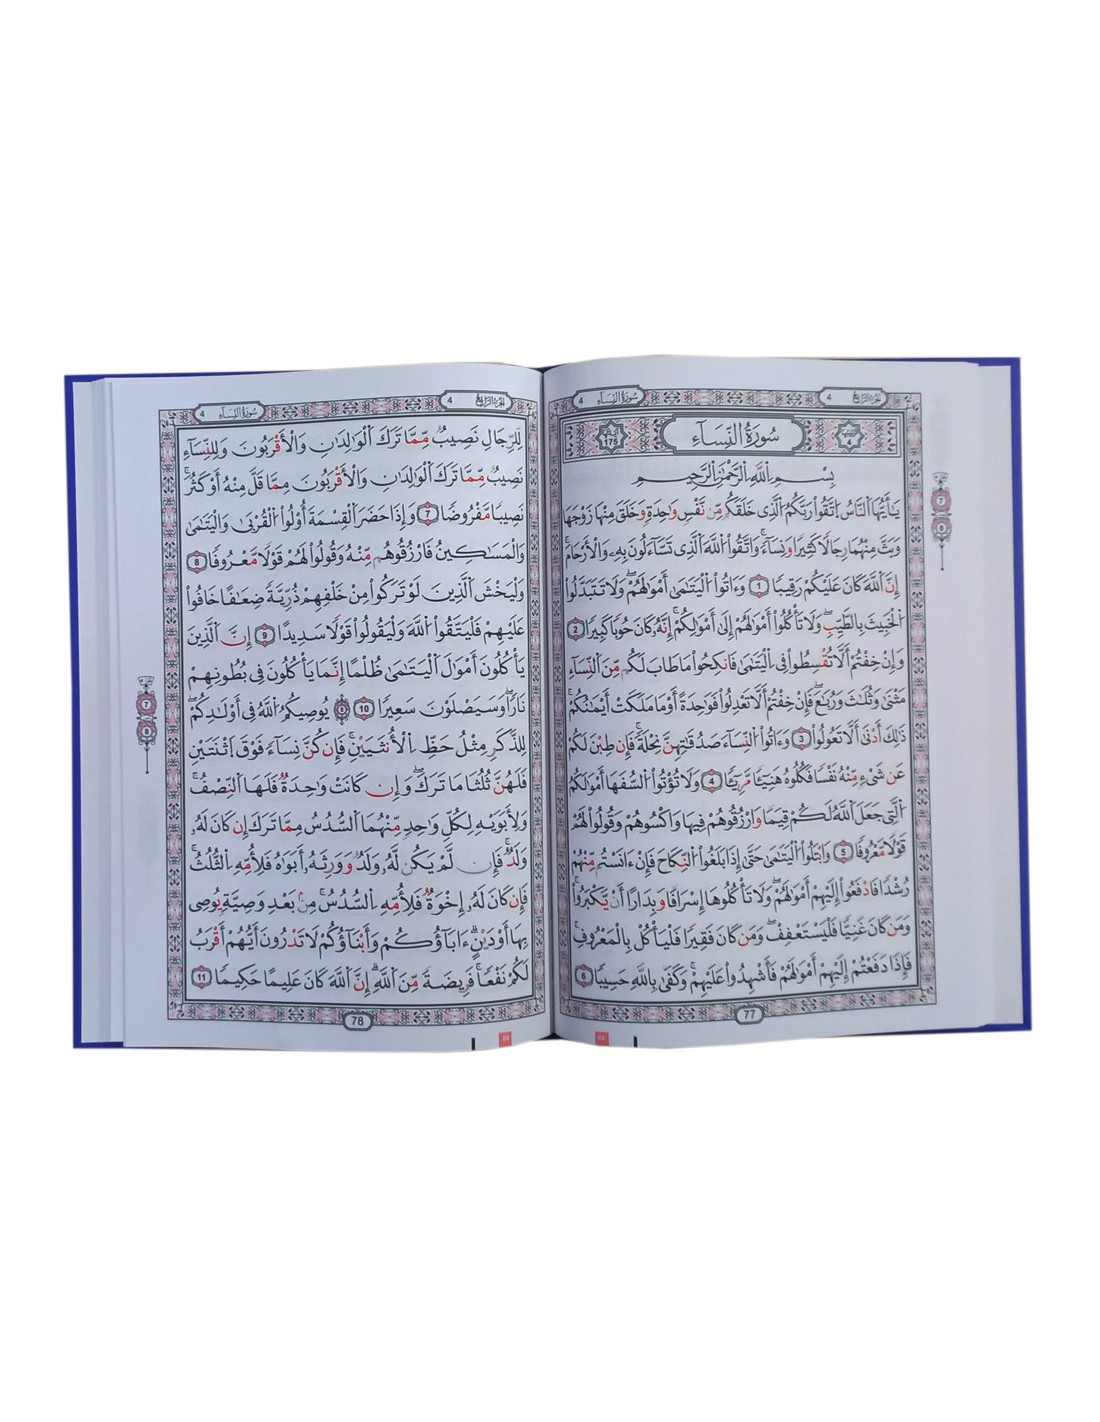 الجزء الرابع 4
سورة النساء 4
4
سُورَةُ النِّسَاءِ
176
بِسْمِ اللَّهِ الرَّحْمَٰنِ الرَّحِيمِ
يَٰأَيُّهَا النَّاسُ اتَّقُوا رَبَّكُمُ الَّذِي خَلَقَكُم مِّن نَّفْسٍ وَٰحِدَةٍ وَخَلَقَ مِنْهَا زَوْجَهَا
وَبَثَّ مِنْهُمَا رِجَالًا كَثِيرًا وَنِسَاءً وَاتَّقُوا اللَّهَ الَّذِي تَسَّاءَلُونَ بِهِ وَالْأَرْحَامَ
إِنَّ اللَّهَ كَانَ عَلَيْكُمْ رَقِيبًا 1 وَءَاتُوا الْيَتَٰمَىٰ أَمْوَٰلَهُمْ وَلَا تَتَبَدَّلُوا
الْخَبِيثَ بِالطَّيِّبِ وَلَا تَأْكُلُوا أَمْوَٰلَهُمْ إِلَىٰ أَمْوَٰلِكُمْ إِنَّهُ كَانَ حُوبًا كَبِيرًا 2
وَإِنْ خِفْتُمْ أَلَّا تُقْسِطُوا فِي الْيَتَٰمَىٰ فَانكِحُوا مَا طَابَ لَكُم مِّنَ النِّسَاءِ
مَثْنَىٰ وَثُلَٰثَ وَرُبَٰعَ فَإِنْ خِفْتُمْ أَلَّا تَعْدِلُوا فَوَٰحِدَةً أَوْ مَا مَلَكَتْ أَيْمَٰنُكُمْ
ذَٰلِكَ أَدْنَىٰ أَلَّا تَعُولُوا 3 وَءَاتُوا النِّسَاءَ صَدُقَٰتِهِنَّ نِحْلَةً فَإِن طِبْنَ لَكُمْ
عَن شَيْءٍ مِّنْهُ نَفْسًا فَكُلُوهُ هَنِيئًا مَّرِيئًا 4 وَلَا تُؤْتُوا السُّفَهَا أَمْوَٰلَكُمُ
الَّتِي جَعَلَ اللَّهُ لَكُمْ قِيَمًا وَارْزُقُوهُمْ فِيهَا وَاكْسُوهُمْ وَقُولُوا لَهُمْ
قَوْلًا مَّعْرُوفًا 5 وَابْتَلُوا الْيَتَٰمَىٰ حَتَّىٰ إِذَا بَلَغُوا النِّكَاحَ فَإِنْ ءَانَسْتُم مِّنْهُمْ
رُشْدًا فَادْفَعُوا إِلَيْهِمْ أَمْوَٰلَهُمْ وَلَا تَأْكُلُوهَا إِسْرَافًا وَبِدَارًا أَنْ يَّكْبَرُوا
وَمَن كَانَ غَنِيًّا فَلْيَسْتَعْفِفْ وَمَن كَانَ فَقِيرًا فَلْيَأْكُلْ بِالْمَعْرُوفِ
فَإِذَا دَفَعْتُمْ إِلَيْهِمْ أَمْوَٰلَهُمْ فَأَشْهِدُوا عَلَيْهِمْ وَكَفَىٰ بِاللَّهِ حَسِيبًا 6
77
7
8
الجزء الرابع 4
سورة النساء 4
لِّلرِّجَالِ نَصِيبٌ مِّمَّا تَرَكَ الْوَٰلِدَٰنِ وَالْأَقْرَبُونَ وَلِلنِّسَاءِ
نَصِيبٌ مِّمَّا تَرَكَ الْوَٰلِدَٰنِ وَالْأَقْرَبُونَ مِمَّا قَلَّ مِنْهُ أَوْ كَثُرَ
نَصِيبًا مَّفْرُوضًا 7 وَإِذَا حَضَرَ الْقِسْمَةَ أُوْلُوا الْقُرْبَىٰ وَالْيَتَٰمَىٰ
وَالْمَسَٰكِينُ فَارْزُقُوهُم مِّنْهُ وَقُولُوا لَهُمْ قَوْلًا مَّعْرُوفًا 8
وَلْيَخْشَ الَّذِينَ لَوْ تَرَكُوا مِنْ خَلْفِهِمْ ذُرِّيَّةً ضِعَٰفًا خَافُوا
عَلَيْهِمْ فَلْيَتَّقُوا اللَّهَ وَلْيَقُولُوا قَوْلًا سَدِيدًا 9 إِنَّ الَّذِينَ
يَأْكُلُونَ أَمْوَٰلَ الْيَتَٰمَىٰ ظُلْمًا إِنَّمَا يَأْكُلُونَ فِي بُطُونِهِمْ
نَارًا وَسَيَصْلَوْنَ سَعِيرًا 10 يُوصِيكُمُ اللَّهُ فِي أَوْلَٰدِكُمْ
لِلذَّكَرِ مِثْلُ حَظِّ الْأُنثَيَيْنِ فَإِن كُنَّ نِسَاءً فَوْقَ اثْنَتَيْنِ
فَلَهُنَّ ثُلُثَا مَا تَرَكَ وَإِن كَانَتْ وَٰحِدَةٌ فَلَهَا النِّصْفُ
وَلِأَبَوَيْهِ لِكُلِّ وَٰحِدٍ مِّنْهُمَا السُّدُسُ مِمَّا تَرَكَ إِن كَانَ لَهُ
وَلَدٌ فَإِن لَّمْ يَكُن لَّهُ وَلَدٌ وَوَرِثَهُ أَبَوَاهُ فَلِأُمِّهِ الثُّلُثُ
فَإِن كَانَ لَهُ إِخْوَةٌ فَلِأُمِّهِ السُّدُسُ مِنْ بَعْدِ وَصِيَّةٍ يُوصِي
بِهَا أَوْ دَيْنٍ ءَابَاؤُكُمْ وَأَبْنَاؤُكُمْ لَا تَدْرُونَ أَيُّهُمْ أَقْرَبُ
لَكُمْ نَفْعًا فَرِيضَةً مِّنَ اللَّهِ إِنَّ اللَّهَ كَانَ عَلِيمًا حَكِيمًا 11
78
7
8